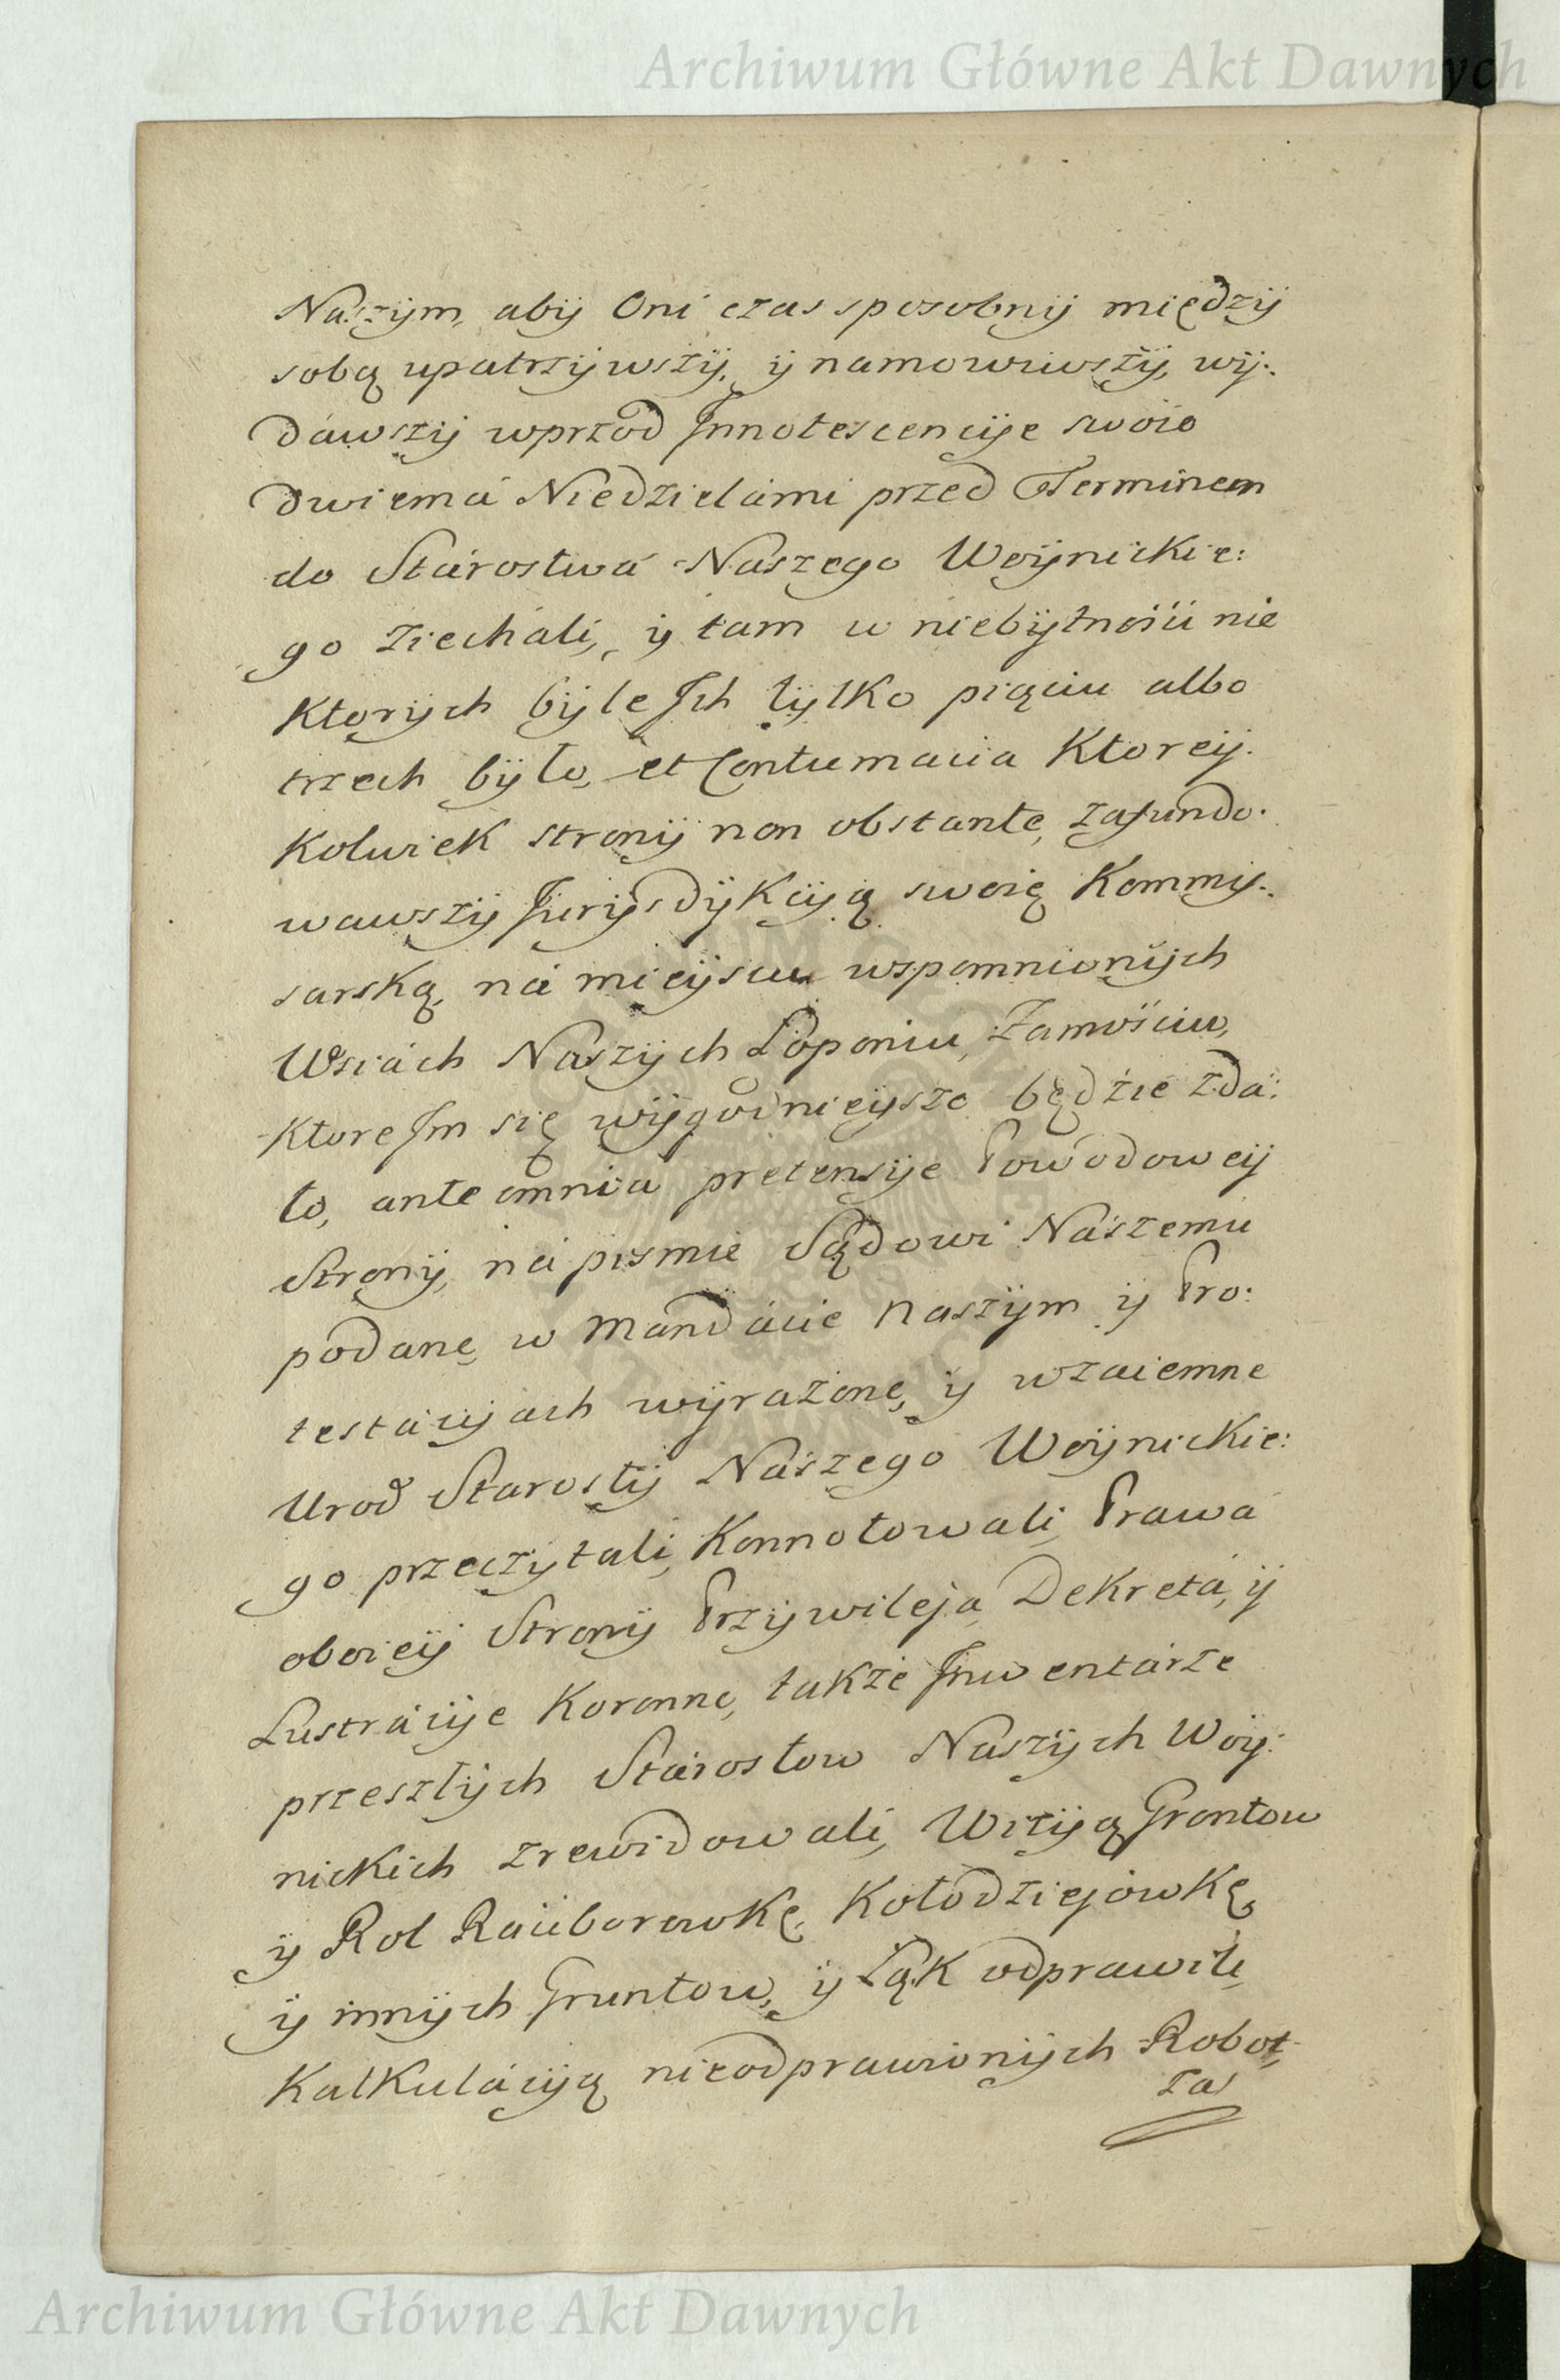 Archiwum Główne Akt Dawnych
Naszym, aby Oni czas sposobny między
sobą upatrzywszy, y namowiwszy, wy:
dáwszy wprzod Innotescencye swoie
dwiemá Niedzielámi przed Terminem
do Stárostwá Naszego Woynickie:
go ziecháli, y tam w niebytnośći nie
Ktorych byle Ich tylko pięciu albo
trzech było, et Contumacia Ktorey.
Kolwiek strony non obstante, zafundo:
wawszy Jurysdykcyą swoię Kommis:
sarską, ná mieyscu wspomnionych
Wsiách Naszych Łoponiu, Zamościu,
Ktore Im się wygodnieysze będzie zda:
ło, ante omnia pretensye Powodowey
Strony, ná pismie Sądowi Nászemu
podane, w Mandácie Naszym y Pro:
testácyach wyrażone, y wzaiemne
Urod Starosty Nászego Woynickie:
go przeczytali, Konnotowali, Prawa
oboiey Strony Przywileja, Dekretá, y
Lustrácye Koronne, także Inwentárze
przeszłych Stárostow Naszych Woy:
nickich zrewidowali, Wizyą Grontow
y Rol Ráuborowkę, Kołodziejowkę,
y innych Gruntow, y Łąk odprawili,
Kalkulácyą nieodprawionych Robot,
za
Archiwum Główne Akt Dawnych